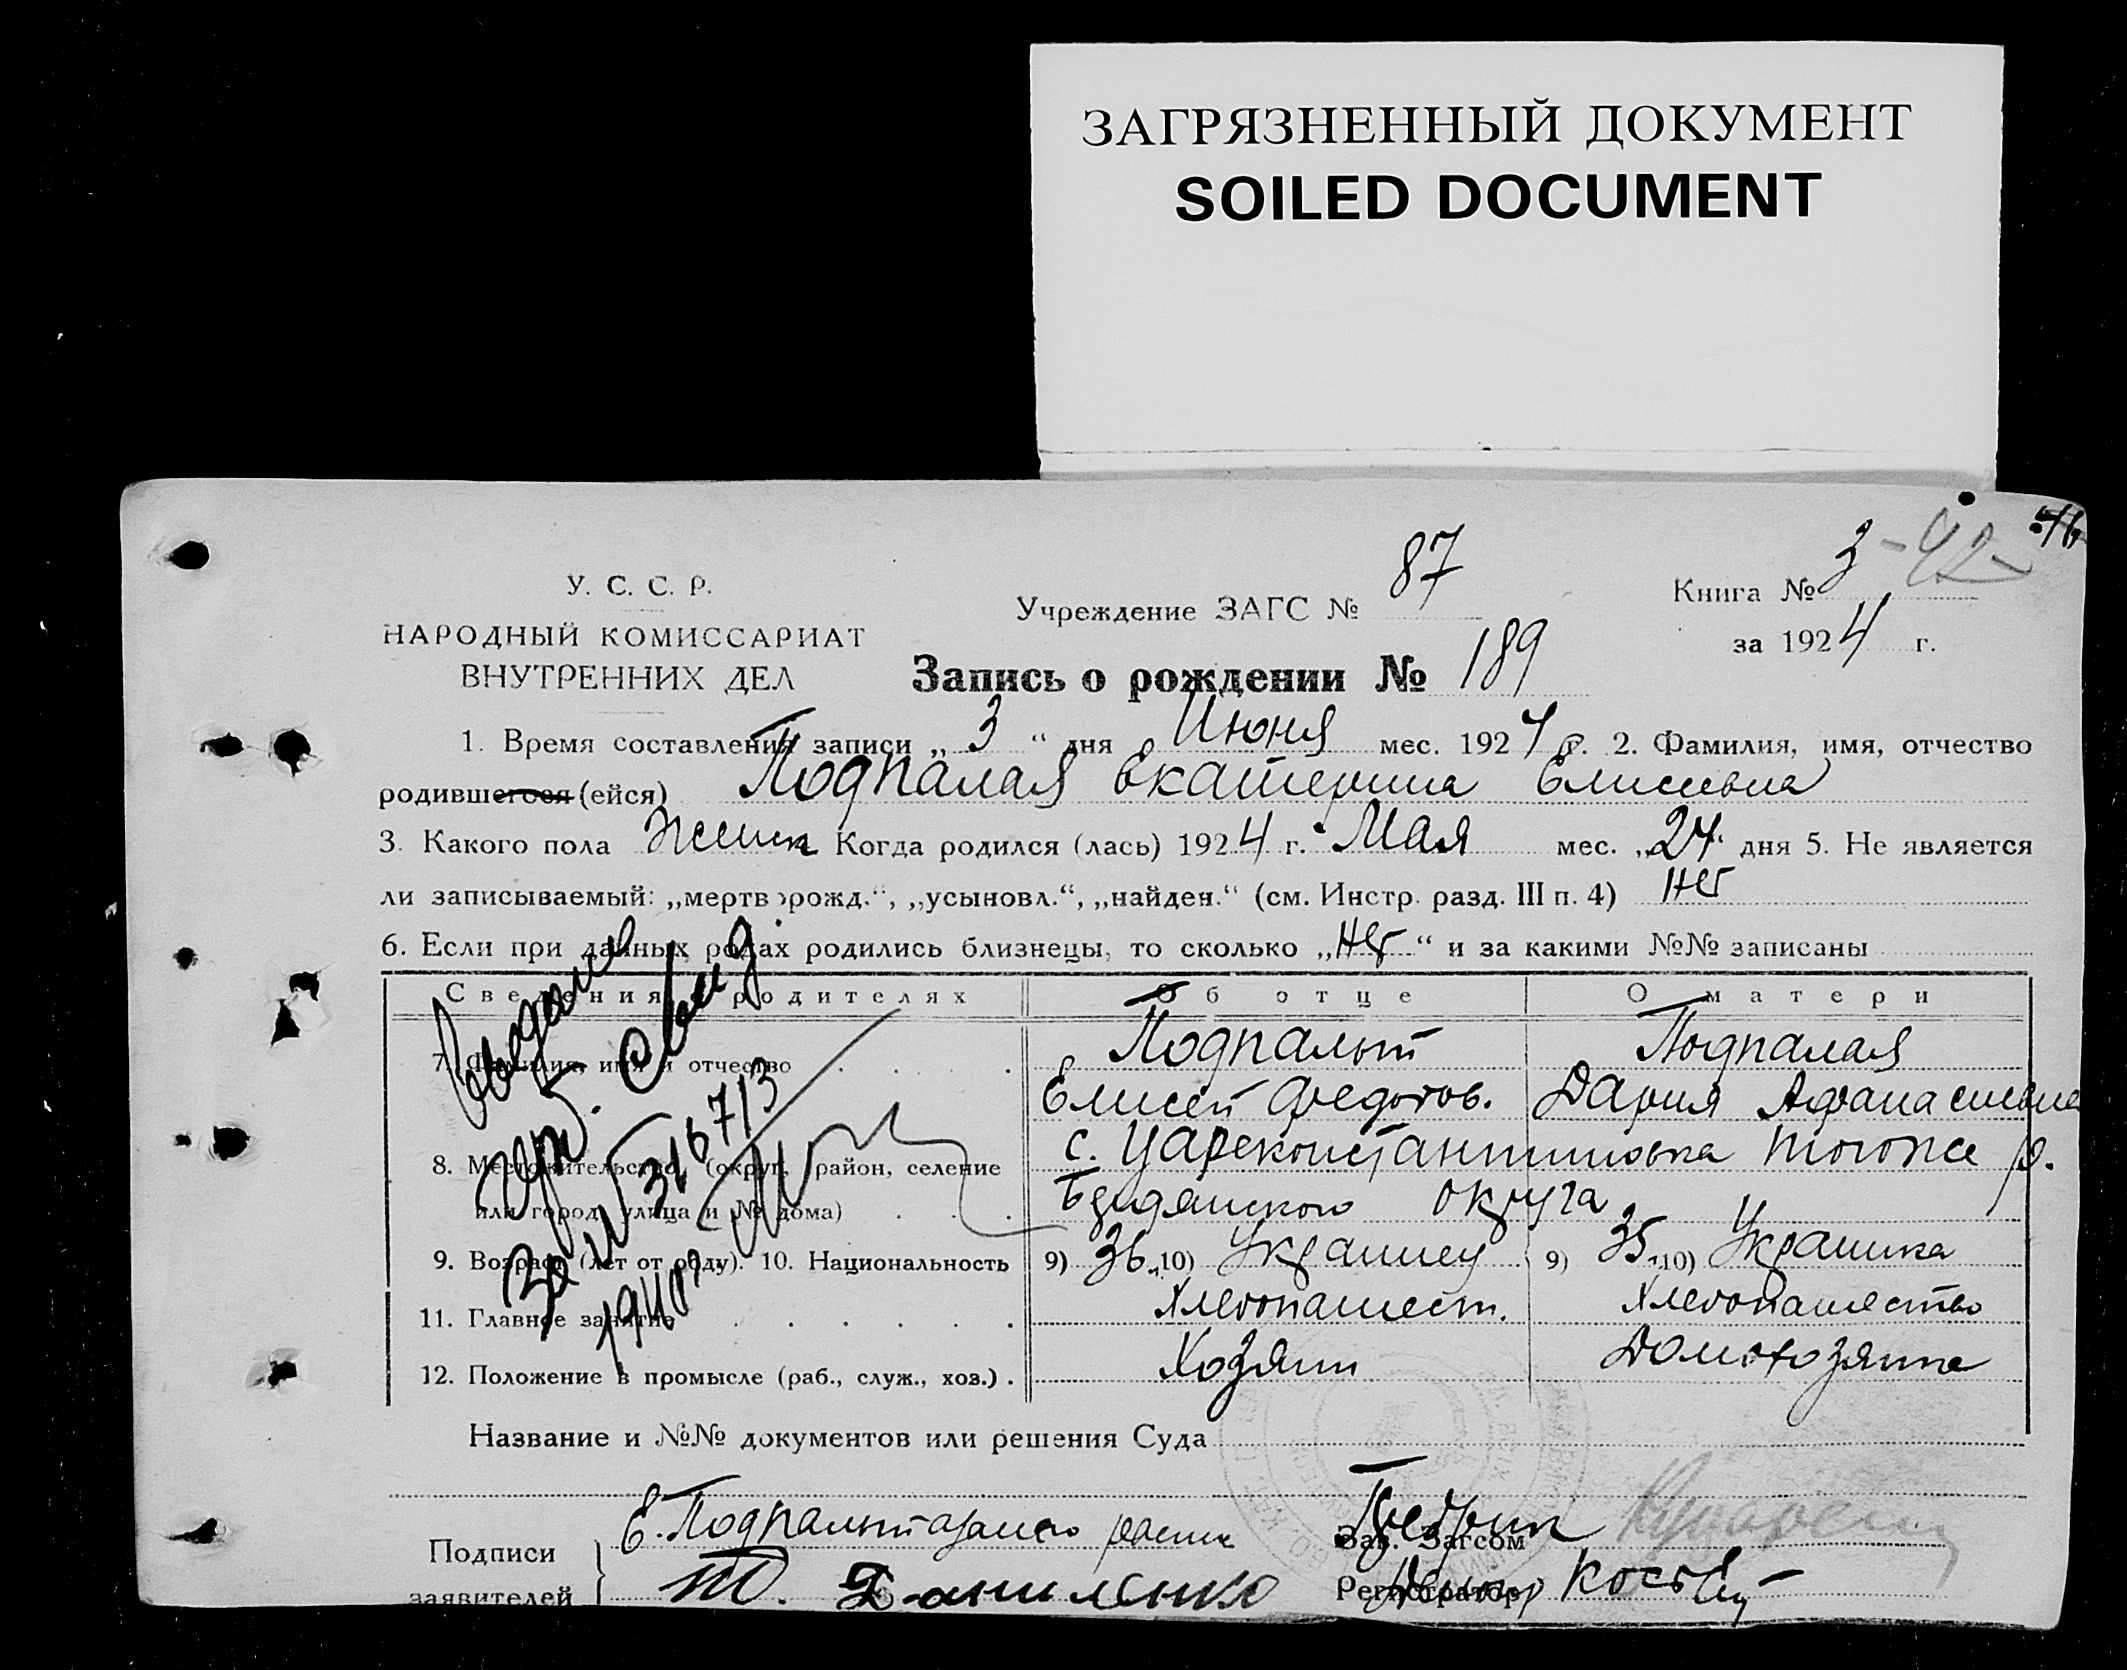 ЗАГРЯЗНЕННЫЙ ДОКУМЕНТ
SOILED DOCUMENT
У. С. С. Р.
НАРОДНЫЙ КОМИССАРИАТ
ВНУТРЕННИХ ДЕЛ
Учреждение ЗАГС № 87
Книга № 3 - 42 -
за 1924 г.
Запись о рождении № 189
1. Время составления записи „ 3 “ дня Июня мес. 1924 г. 2. Фамилия, имя, отчество
родившегося (ейся) Подпалая Екатерина Елисеевна
3. Какого пола Женск Когда родился (лась) 1924 г. Мая мес. „24“ дня 5. Не является
ли записываемый: „мертворожд.“, „усыновл.“, „найден.“ (см. Инстр. разд. III п. 4) нет
6. Если при данных родах родились близнецы, то сколько „нет“ и за какими №№ записаны
Сведения о родителях Об отце О матери
7. Фамилия, имя и отчество Подпалый Подпалая
Елисей Федотов. Дария Афанасиевна
8. Местожительство (округ, район, селение с. Цареконстантиновка тогоже р.
или город, улица и № дома) Бердянского округа
9. Возраст (лет от роду). 10. Национальность 9) 36 10) Украинец 9) 35 10) Украинка
11. Главное занятие Хлебопашест. Хлебопашество
12. Положение в промысле (раб., служ., хоз.) Хозяин Домохозяйка
Выдано
Свид.
За № 316713
1940г.
Название и №№ документов или решения Суда
Подписи Е. Подпалый Зав. Загсом
заявителей Т. Даниленко Регистратор